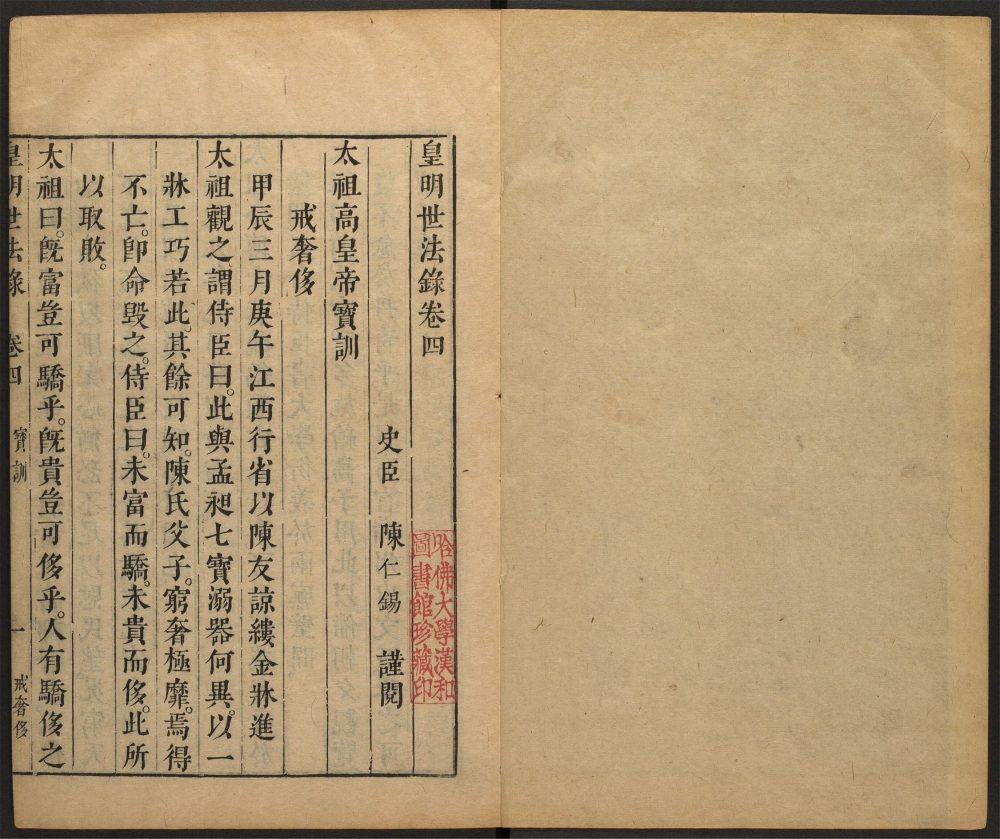 皇明世法錄卷四
史臣 陳仁錫 謹閱
太祖高皇帝寶訓
戒奢侈
甲辰三月庚午江西行省以陳友諒縷金牀進
太祖觀之。謂侍臣曰。此與孟昶七寶溺器何異。以一
牀工巧若此。其餘可知。陳氏父子。窮奢極靡。焉得
不亡。卽命毀之。侍臣曰。未富而驕。未貴而侈。此所
以取敗。
太祖曰。旣富豈可驕乎。旣貴豈可侈乎。人有驕侈之
皇明世法錄 卷四 寶訓 一 戒奢侈
哈佛大學漢和
圖書館珍藏印